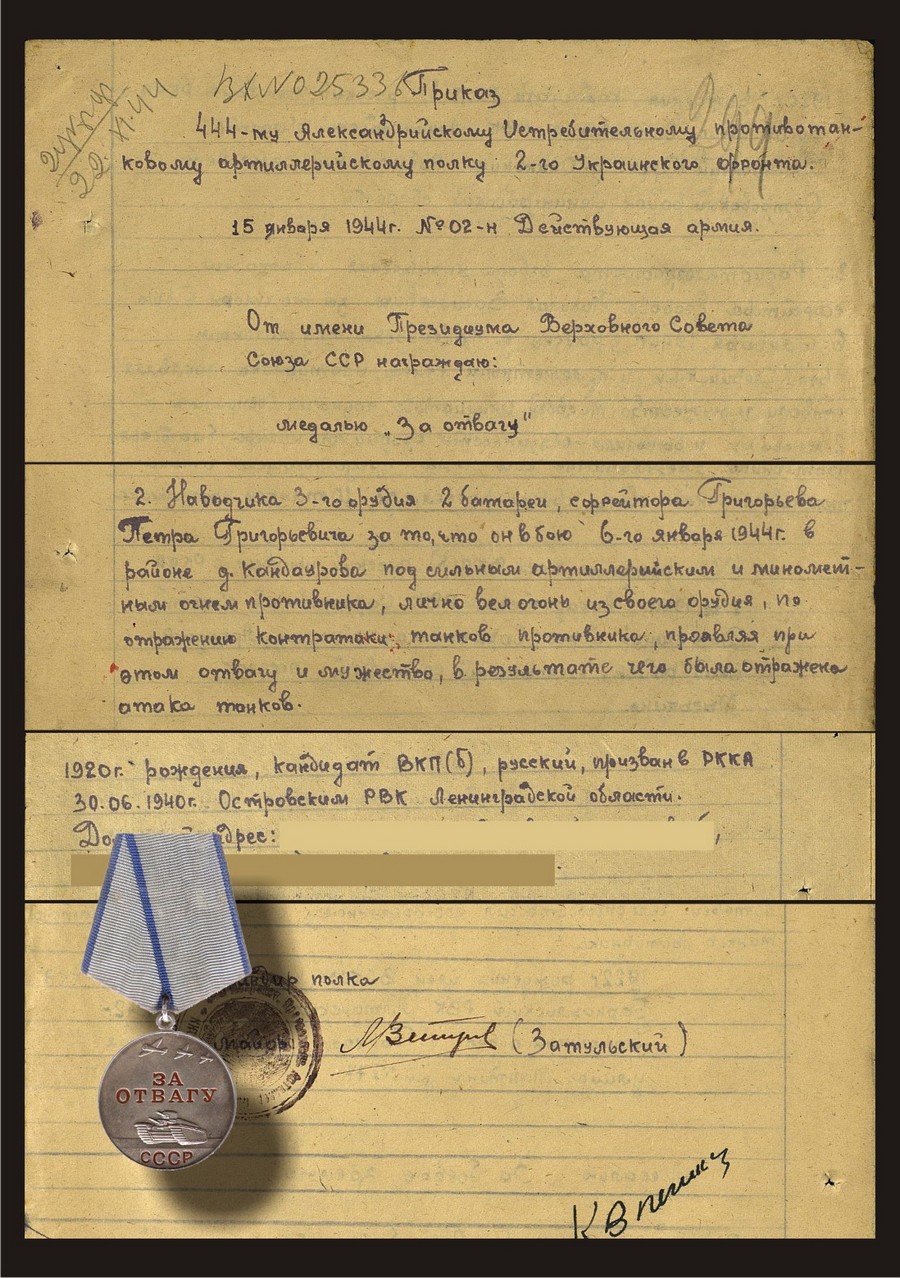 ВхNo25336
22.XI.44
299
Приказ
444-му Александрийскому Истребительному противотан-
ковому артиллерийскому полку 2-го Украинского фронта.
15 января 1944г. №02-н Действующая армия.
От имени Президиума Верховного Совета
Союза ССР награждаю:
медалью „За отвагу"
2. Наводчика 3-го орудия 2 батареи, ефрейтора Григорьева
Петра Григорьевича за то, что он в бою 6-го января 1944г. в
районе д. Кандаурова под сильным артиллерийским и миномет-
ным огнем противника, лично вел огонь из своего орудия, по
отражению контратаки, танков противника, проявляя при
этом отвагу и мужество, в результате чего была отражена
атака танков.
1920г. рождения, кандидат ВКП(б), русский, призван в РККА
30.06.1940г. Островским РВК Ленинградской области.
адрес:
полка
майор (Затульский)
ЗА
ОТВАГУ
СССР